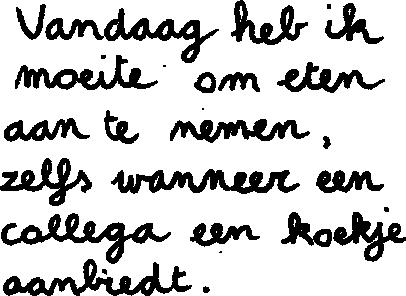 Vandaag heb ik
moeite om eten
aan te nemen,
zelfs wanneer een
collega een koekje
aanbiedt.